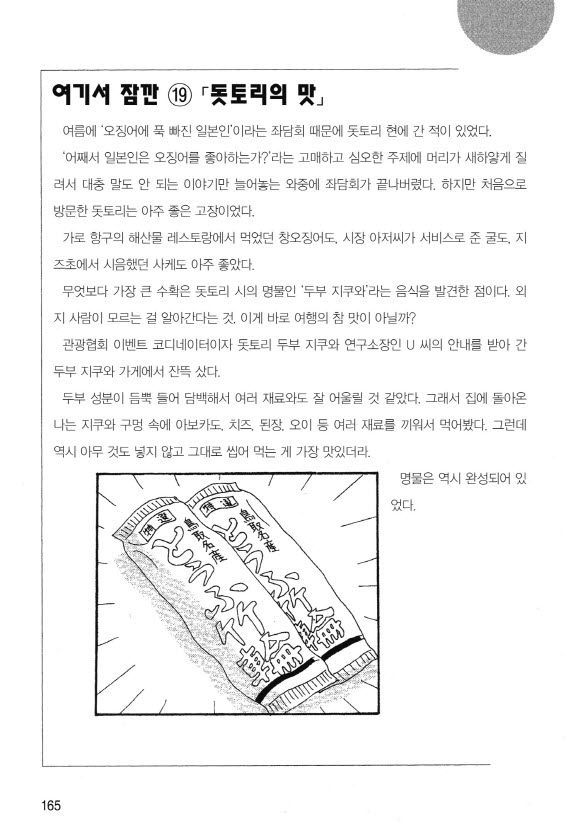 여기서 잠깐 ⑲ 「돗토리의 맛」
여름에 ‘오징어에 푹 빠진 일본인’이라는 좌담회 때문에 돗토리 현에 간 적이 있었다.
‘어째서 일본인은 오징어를 좋아하는가?’라는 고매하고 심오한 주제에 머리가 새하얗게 질
려서 대충 말도 안 되는 이야기만 늘어놓는 와중에 좌담회가 끝나버렸다. 하지만 처음으로
방문한 돗토리는 아주 좋은 고장이었다.
가로 항구의 해산물 레스토랑에서 먹었던 창오징어도, 시장 아저씨가 서비스로 준 굴도, 지
즈초에서 시음했던 사케도 아주 좋았다.
무엇보다 가장 큰 수확은 돗토리 시의 명물인 ‘두부 지쿠와’라는 음식을 발견한 점이다. 외
지 사람이 모르는 걸 알아간다는 것, 이게 바로 여행의 참 맛이 아닐까?
관광협회 이벤트 코디네이터이자 돗토리 두부 지쿠와 연구소장인 U 씨의 안내를 받아 간
두부 지쿠와 가게에서 잔뜩 샀다.
두부 성분이 듬뿍 들어 담백해서 여러 재료와도 잘 어울릴 것 같았다. 그래서 집에 돌아온
나는 지쿠와 구멍 속에 아보카도, 치즈, 된장, 오이 등 여러 재료를 끼워서 먹어봤다. 그런데
역시 아무 것도 넣지 않고 그대로 씹어 먹는 게 가장 맛있더라.
명물은 역시 완성되어 있
었다.
特選
鳥取名産
とうふ竹輪
特選
鳥取名産
とうふ竹輪
165